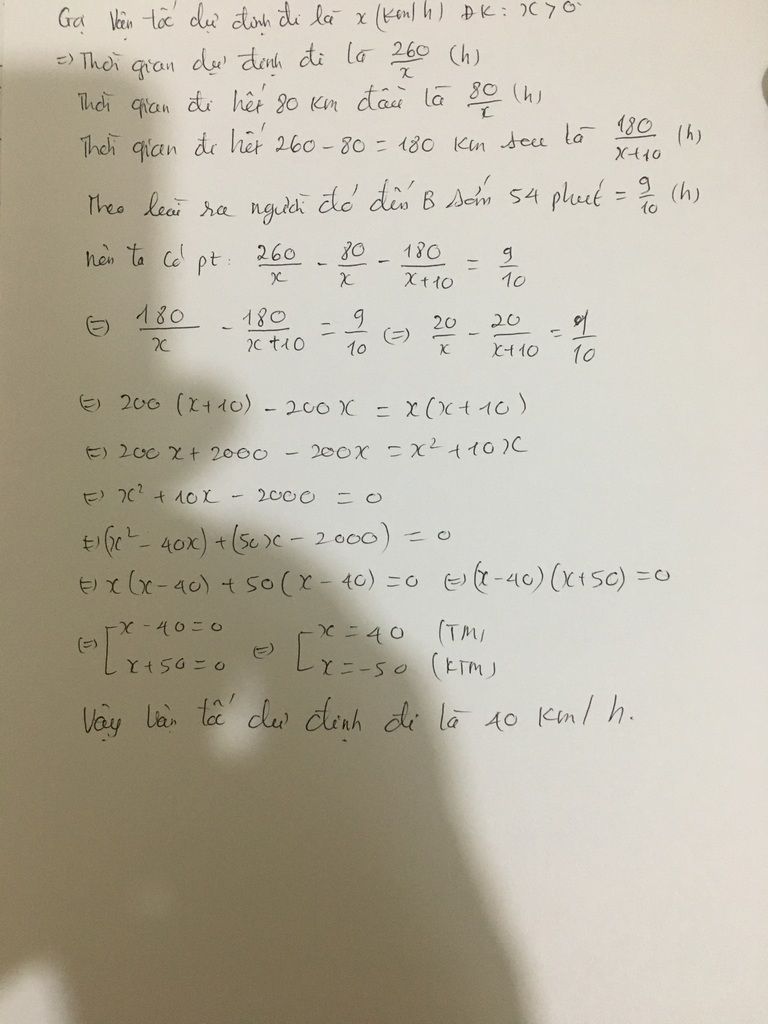 Gọi vận tốc dự định đi là x (km/h) ĐK: x > 0
=> Thời gian dự định đi là 260/x (h)
Thời gian đi hết 80 km đầu là 80/x (h)
Thời gian đi hết 260 - 80 = 180 km sau là 180/(x+10) (h)
Theo bài ra người đó đến B sớm 54 phút = 9/10 (h)
nên ta có pt: 260/x - 80/x - 180/(x+10) = 9/10
(=) 180/x - 180/(x+10) = 9/10 (=) 20/x - 20/(x+10) = 1/10
(=) 200 (x+10) - 200x = x(x+10)
(=) 200x + 2000 - 200x = x² + 10x
(=) x² + 10x - 2000 = 0
(=) (x² - 40x) + (50x - 2000) = 0
(=) x(x-40) + 50(x-40) = 0 (=) (x-40)(x+50) = 0
(=) [ x - 40 = 0 (=) [ x = 40 (TM)
x + 50 = 0 x = -50 (KTM)
Vậy vận tốc dự định đi là 40 km/h.